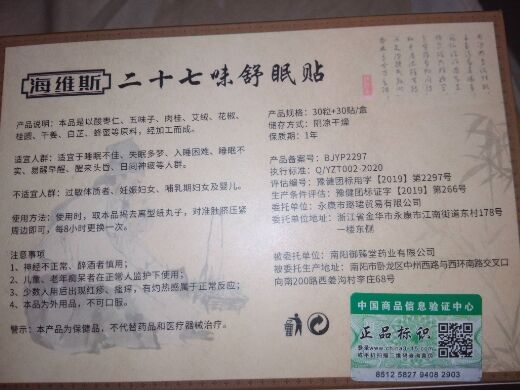 海维斯 二十七味舒眠贴
产品说明：本品是以酸枣仁、五味子、肉桂、艾绒、花椒、
桂圆、干姜、白芷、蜂蜜等原料，经加工而成。
适宜人群：适宜于睡眠不佳、失眠多梦、入睡困难、睡眠不
实、易醒早醒、醒来头昏、日间神疲等人群。
不适宜人群：过敏体质者、妊娠妇女、哺乳期妇女及婴儿。
使用方法：使用时，取本品揭去离型纸丸子，对准肚脐压紧
周边即可，每8小时更换一次。
注意事项
1、神经不正常、醉酒者慎用；
2、儿童、老年痴呆者在正常人监护下使用；
3、少数人用后出现红疹、瘙痒，有灼热感属于正常反应；
4、本品为外用品，不可口服。
警示：本产品为保健品，不代替药品和医疗器械治疗。
产品规格：30粒+30贴/盒
储存方式：阴凉干燥
保质期：1年
产品备案号：BJYP2297
执行标准：Q/YZT002-2020
评估编号：豫健团标用字【2019】第2297号
生产条件评估：豫健团标证字【2019】第266号
委托单位：永康市路珺贸易有限公司
委托单位地址：浙江省金华市永康市江南街道东村178号
一楼东侧
被委托单位：南阳御臻堂药业有限公司
被委托生产地址：南阳市卧龙区中州西路与西环南路交叉口
向南200路西姜沟村李庄68号
中国商品信息验证中心
正品标识
登录www.china3-15.com
或手机扫描二维码查询真伪
8512 5827 9408 2903